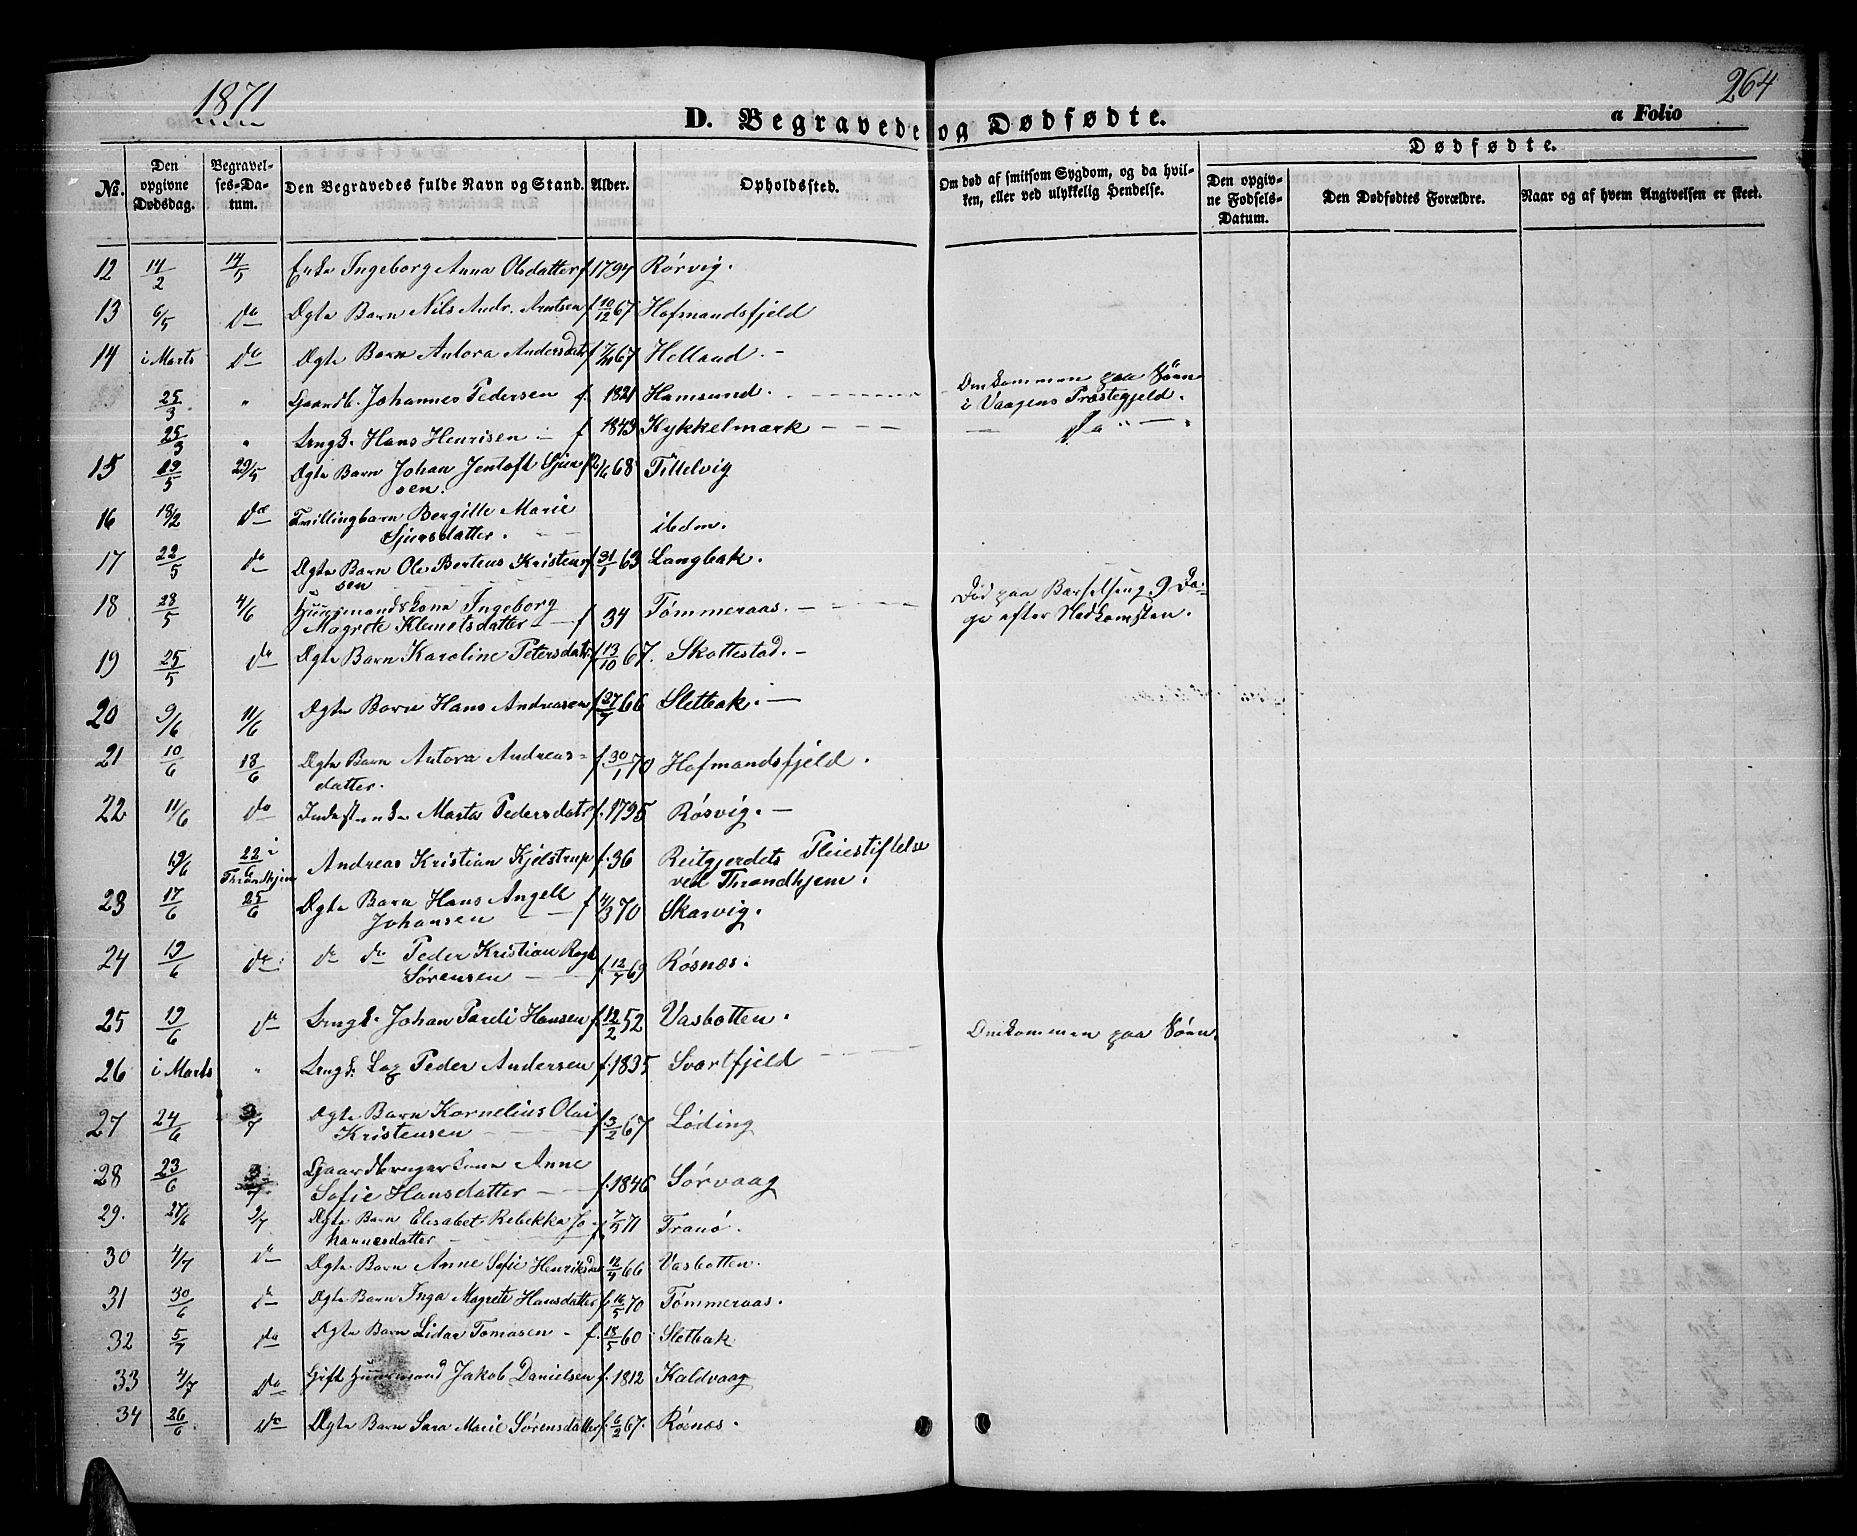 1871
264
D. Begravede og Dødfødte.
a Folio
Dødfødte.
No.
Den opgivne Dødsdag.
Begravelses-Datum.
Den Begravedes fulde Navn og Stand.
Alder.
Opholdssted.
Om død af smitsom Sygdom, og da hvilken, eller ved ulykkelig Hendelse.
Den opgivne Fødsels-Datum.
Den Dødfødtes Forældre.
Naar og af hvem Angivelsen er skeet.
12 14/2 14/5 Enke Ingeborg Anna Olsdatter f 1794 Rørvig.
13 6/5 do Ægte Barn Nils Andr. Arntsen f. 10/12 67 Hofmandsfjeld
14 i Marts do Ægte Barn Antora Andersdatr f 67 Helland. -
25/3 " Gaardb. Johannes Pedersen f. 1821 Hamsund. Omkommen paa Søen
i Vaagens Præstegjeld.
25/3 " Ungk. Hans Henrisen - f 1843 Kykkelmark - - - do " -
15 19/5 29/5 Ægte Barn Johan Jentoft Sjur f 68 Tittelvig
sen.
16 18/2 do Tvillingbarn Bergitte Marie
Sjursdatter. ibdm.
17 22/5 do Ægte Barn Ole Berteus Kristen f. 31/5 63 Langbak.
sen
18 28/5 4/6 Huusmandskone Ingeborg Død paa Barselseng 9 Da-
Magrete Klemetsdatter - f 34 Tømmeraas. - ge efter Nedkomsten.
19 25/5 do Ægte Barn Karoline Petersdatr f 13/10 67. Skottestad. -
20 9/6 11/6 Ægte Barn Hans Andreasen f 27/7 66 Sletbak. -
21 10/6 18/6 Ægte Barn Antora Andreas- f. 30/1 70 Hofmandsfjeld.
datter.
22 11/6 do Inderstenke Marta Pedersdatr f. 1795 Røsvig. -
19/6 22/6 i Throndhjem Andreas Kristian Kjelstrup f. 36 Reitgjerdets Pleiestiftelse
ved Throndhjem.
23 17/6 25/6 Ægte Barn Hans Angell f 4/3 70 Skarvig.
Johansen
24 19/6 do do do Peder Kristian Rogl f. 12/7 69 Røsnæs.
Sørensen
25 19/6 do Ungk. Johan Pareli Hansen f. 12/2 52 Vasbotten. Omkommen paa Søen.
26 i Marts " Ungk. Lap Peder Andersen f. 1835 Svartfjeld
27 24/6 3/7 Ægte Barn Kornelius Olai
Kristensen f 3/2 67 Løding
28 23/6 3/7 Gaardbrugerkone Anne
Sofie Hansdatter - f. 1846 Sørvaag
29. 27/6 9/7 Ægte Barn Elisabet Rebekka Jo
hannesdatter f. 7/5 71 Tranø.
30 4/7 do Ægte Barn Anne Sofie Henriksdatr 12/4 66 Vasbotten.
31 30/6 do Ægte Barn Inga Magrete Hansdatter f. 16/5 70 Tømmeraas.
32 5/7 do Ægte Barn Lidar Tomasen - f. 18/5 60 Sletbak
33 4/7 do Gift Huusmand Jakob Danielsen f. 1812 Kaldvaag
34 26/6 do Ægte Barn Sara Marie Sørensdatter f. 6/2 67. Røsnæs.